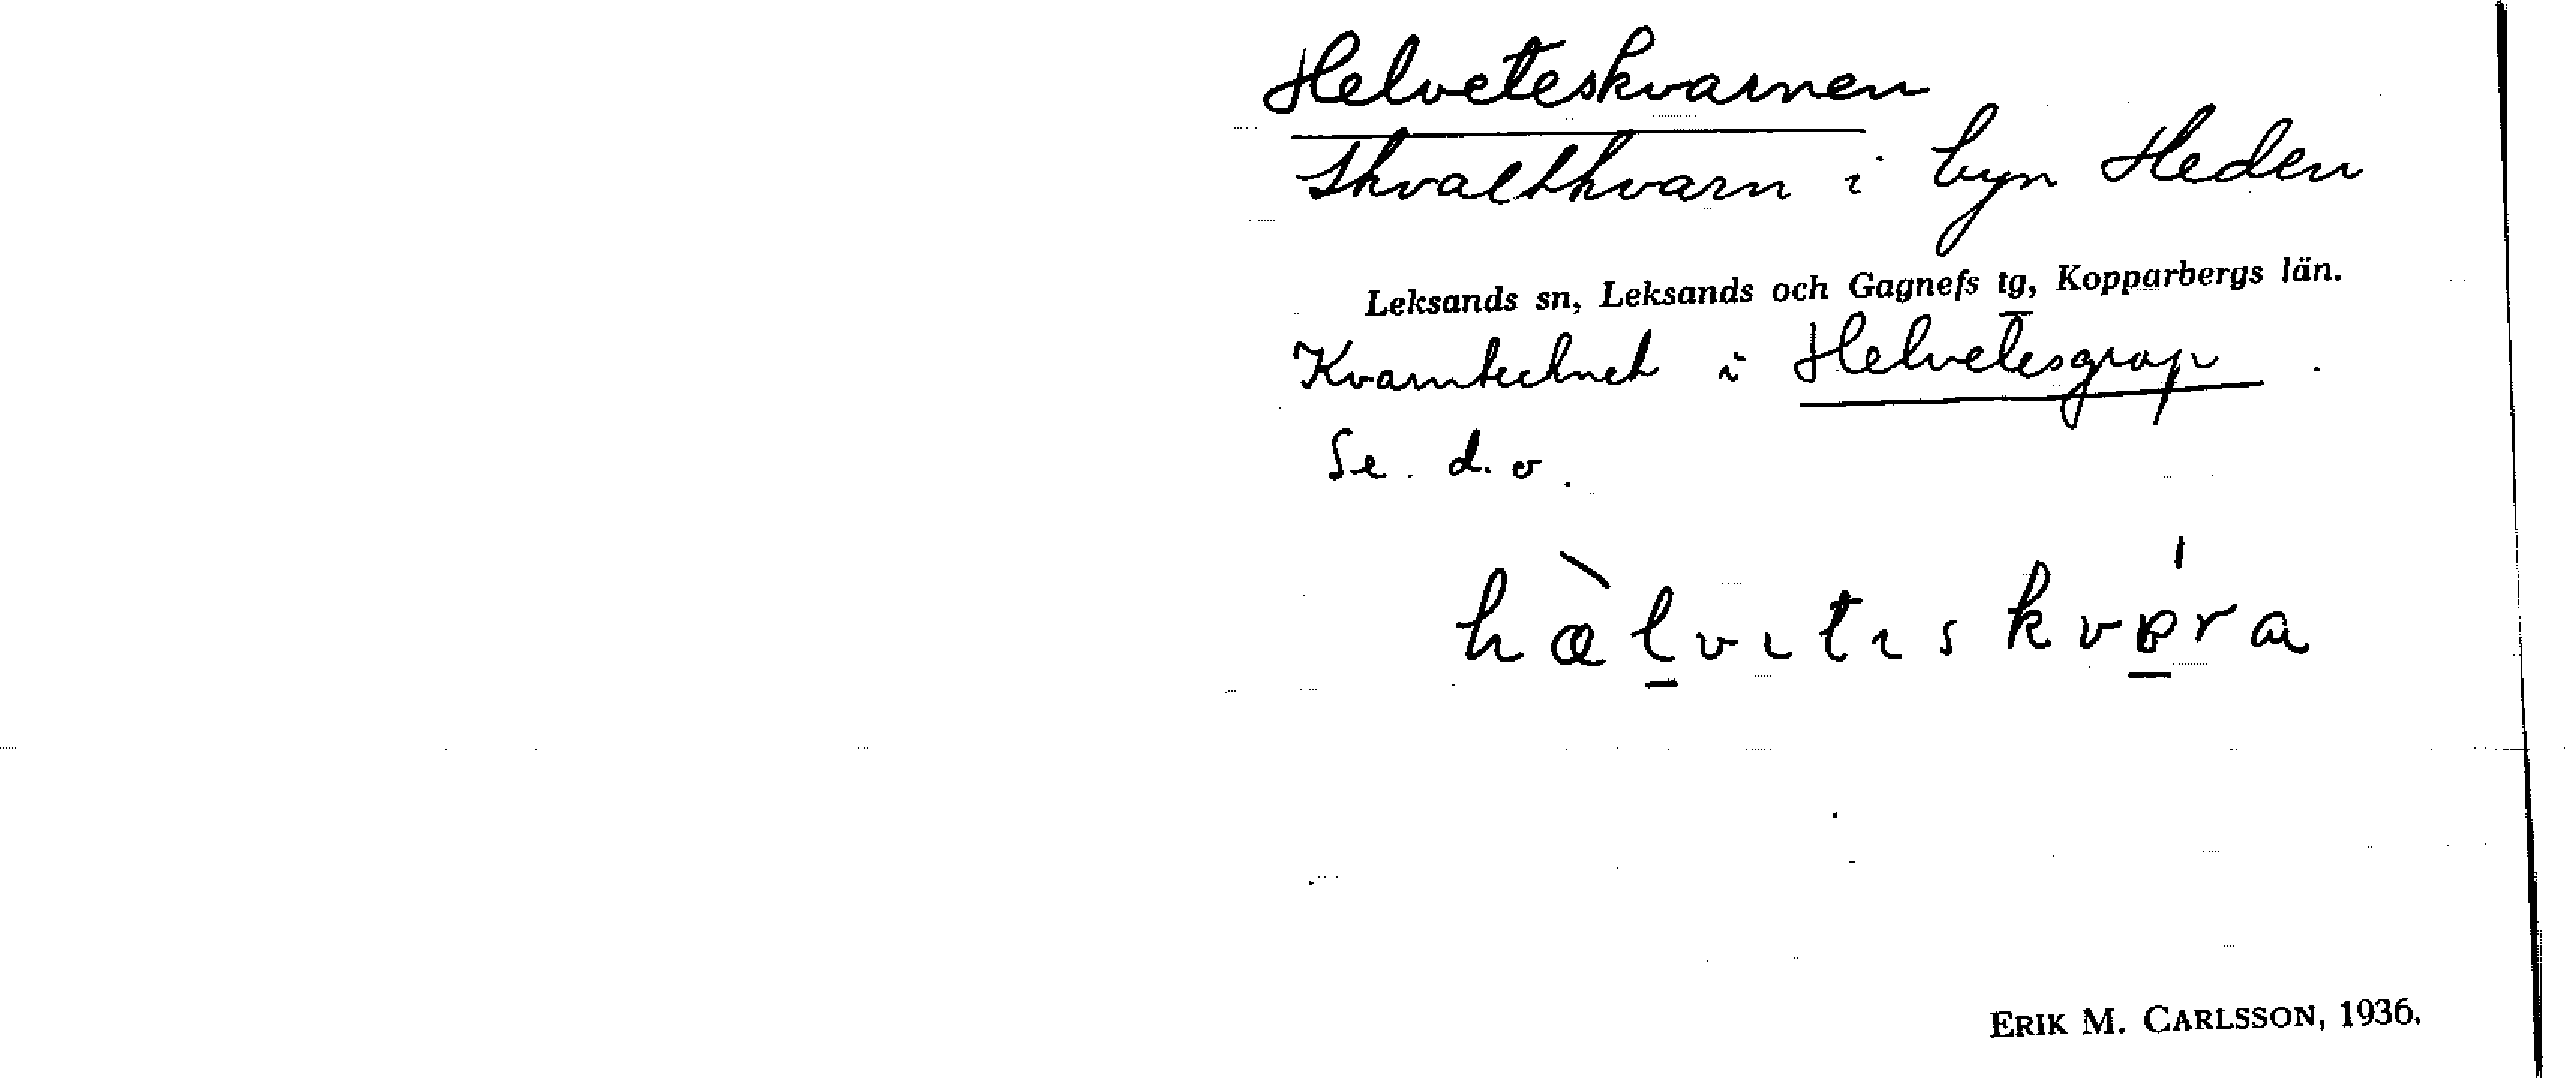 Helveteskvarnen
Skvaltkvarn i byn Heden
Leksands sn, Leksands och Gagnefs tg, Kopparbergs län.
i Helvetesgrap.
Se. d. o.
hæ̀lvıtıskvɐ́ra
ERIK M. CARLSSON, 1936.